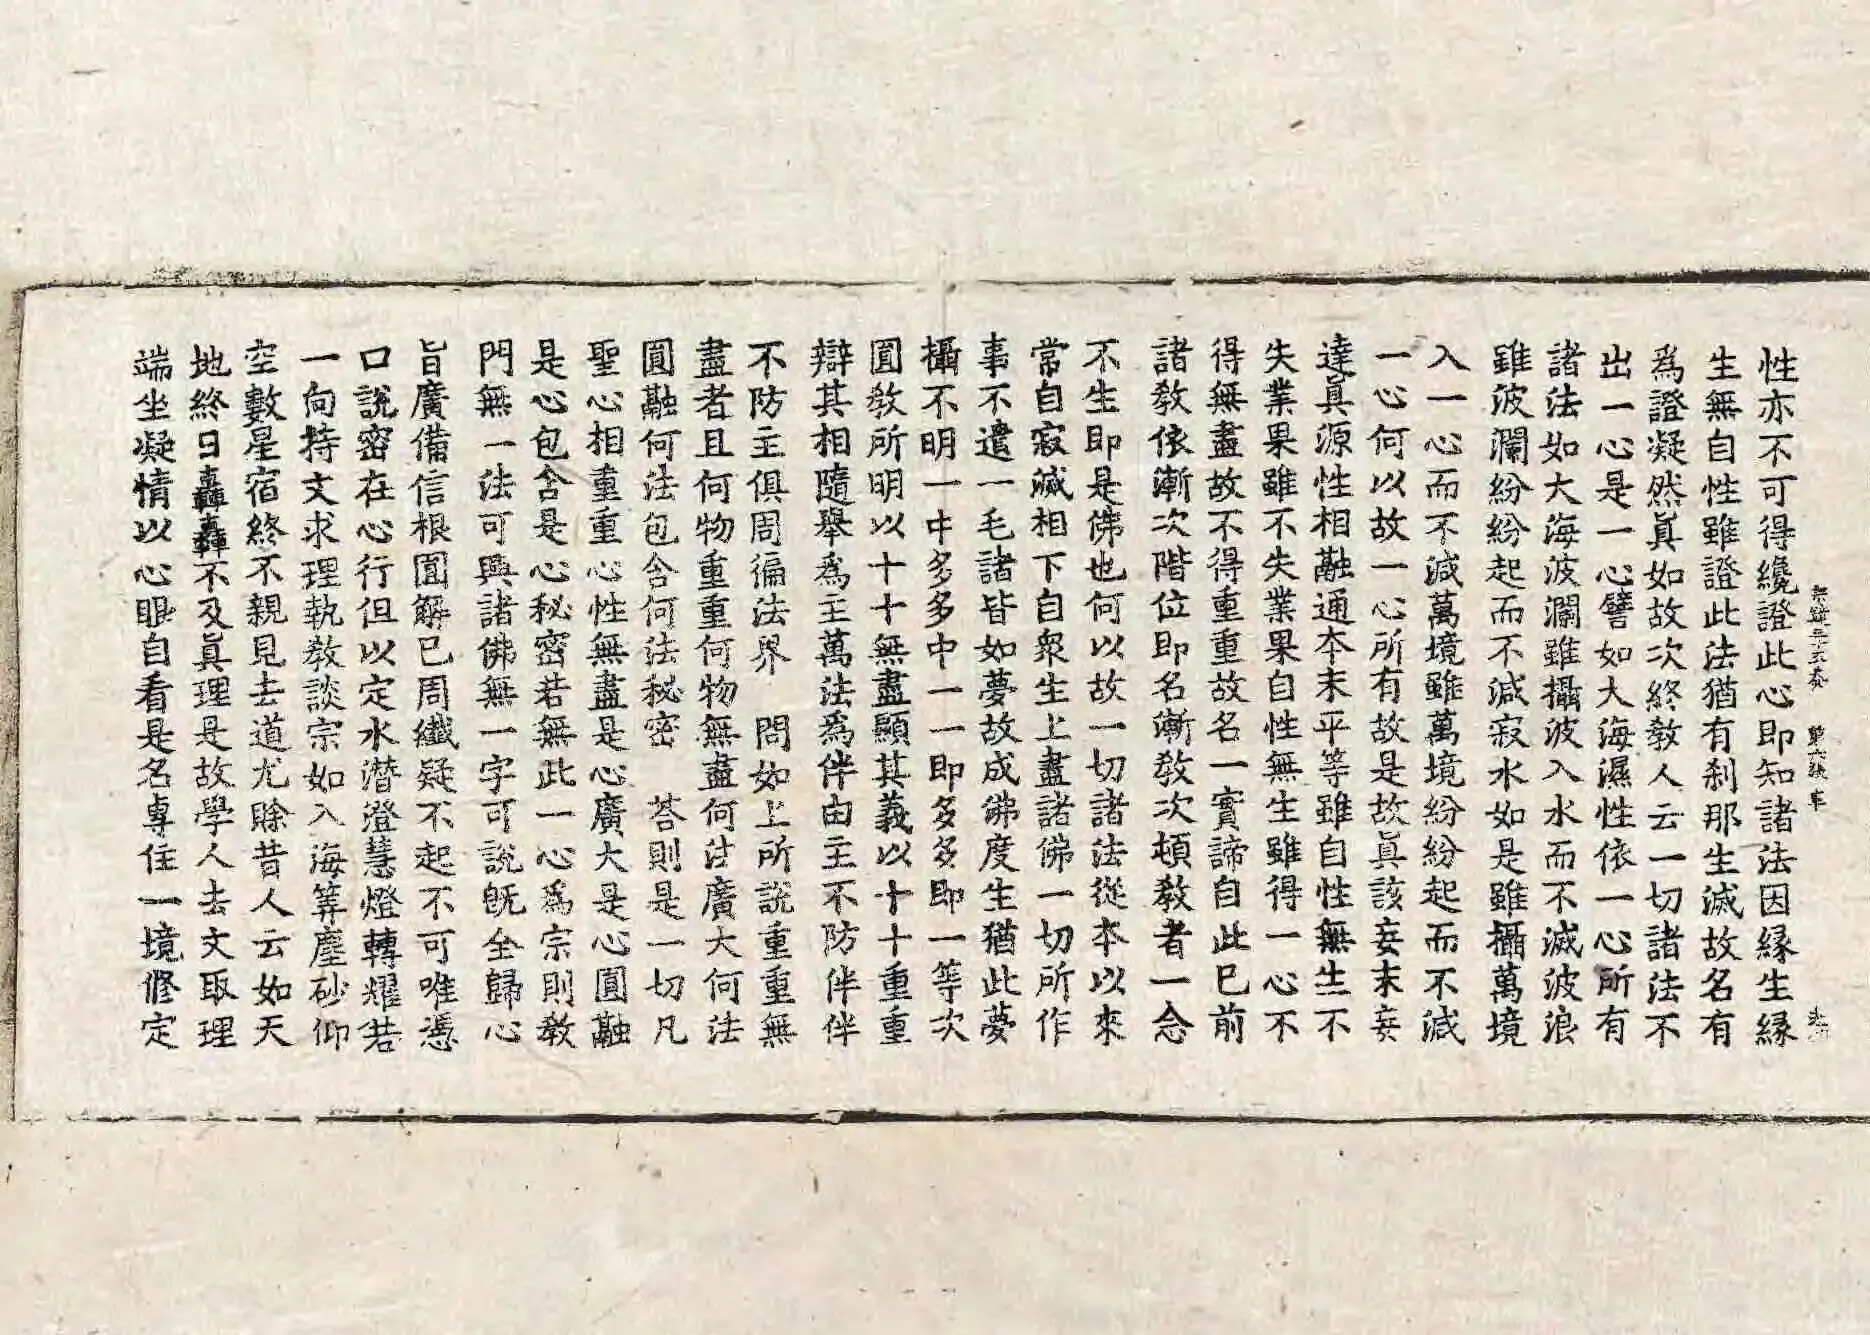 性亦不可得纔證此心即知諸法因縁生縁
生無自性雖證此法猶有刹那生滅故名有
爲證凝然真如故次終教人云一切諸法不
出一心是一心譬如大海濕性依一心所有
諸法如大海波瀾雖攝波入水而不滅波浪
雖波瀾紛紛起而不減寂水如是雖攝萬境
入一心而不減萬境雖萬境紛紛起而不減
一心何以故一心所有故是故真該妄末妄
達真源性相融通本末平等雖自性無生不
失業果雖不失業果自性無生雖得一心不
得無盡故不得重重故名一實諦自此已前
諸教依漸次階位即名漸教次頓教者一念
不生即是佛也何以故一切諸法從本以來
常自寂滅相下自衆生上盡諸佛一切所作
事不遣一毛諸皆如夢故成佛度生猶此夢
攝不明一中多多中一一即多多即一等次
圓教所明以十十無盡顯其義以十十重重
辯其相隨舉爲主萬法爲伴由主不防伴伴
不防主俱周徧法界 問如上所説重重無
盡者且何物重重何物無盡何法廣大何法
圓融何法包含何法秘密 荅則是一切凡
聖心相重重心性無盡是心廣大是心圓融
是心包含是心秘密若無此一心爲宗則教
門無一法可興諸佛無一字可説旣全歸心
旨廣備信根圓解已周纖疑不起不可唯憑
口説密在心行但以定水潛澄慧燈轉耀若
一向持文求理執教談宗如入海筭塵砂仰
空數星宿終不親見去道尤賒昔人云如天
地終日轟轟不及真理是故學人去文取理
端坐凝情以心眼自看是名專住一境修定